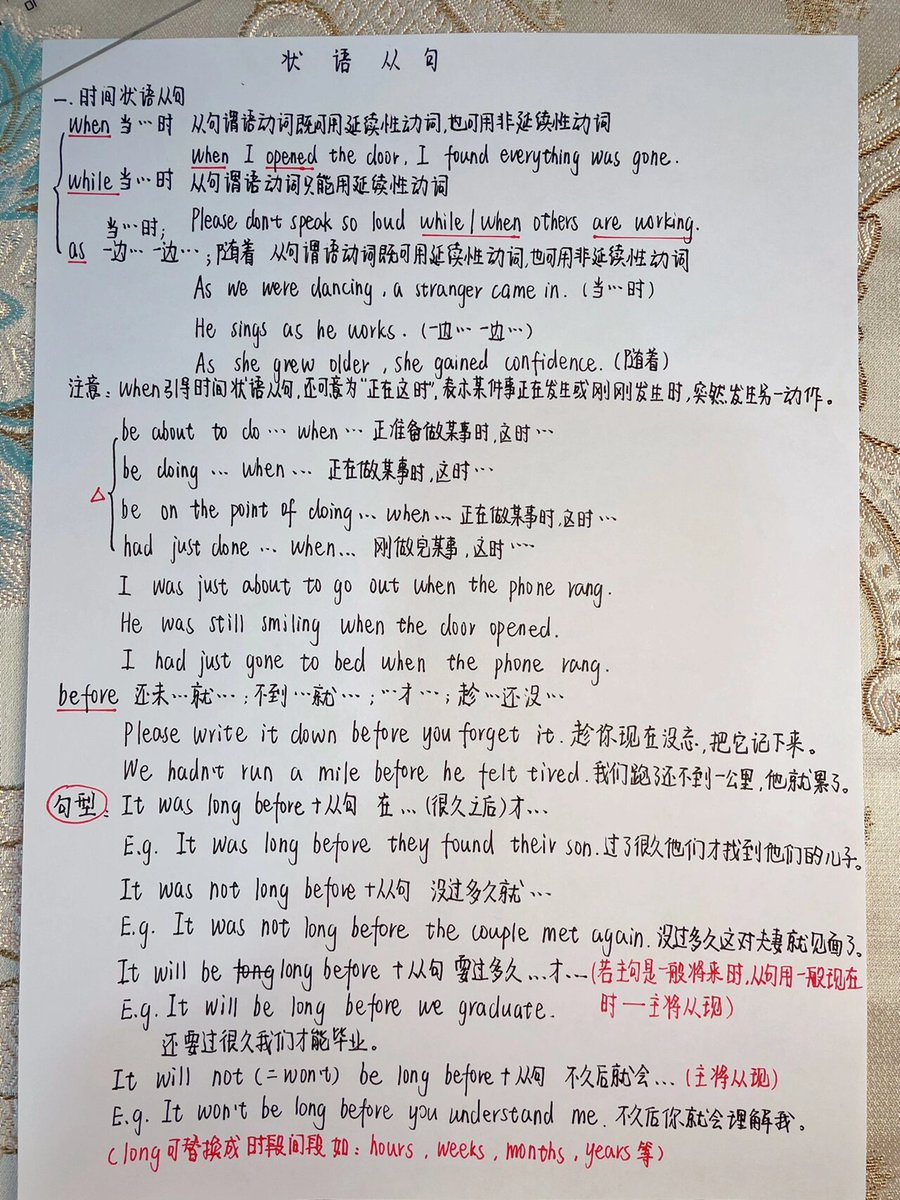 状语从句
一.时间状语从句
when 当…时 从句谓语动词既可用延续性动词,也可用非延续性动词
when I opened the door, I found everything was gone.
while 当…时 从句谓语动词只能用延续性动词
Please don't speak so loud while/when others are working.
as 当…时; 一边… 一边…; 随着 从句谓语动词既可用延续性动词,也可用非延续性动词
As we were dancing, a stranger came in. (当…时)
He sings as he works. (一边… 一边…)
As she grew older, she gained confidence. (随着)
注意: when引导时间状语从句,还可意为"正在这时",表示某件事正在发生或刚刚发生时,突然发生另一动作。
be about to do … when … 正准备做某事时,这时…
be doing … when … 正在做某事时,这时…
△ be on the point of doing … when … 正在做某事时,这时…
had just done … when … 刚做完某事,这时…
I was just about to go out when the phone rang.
He was still smiling when the door opened.
I had just gone to bed when the phone rang.
before 还未…就…; 不到…就…; …才…; 趁…还没…
Please write it down before you forget it. 趁你现在没忘,把它记下来。
We hadn't run a mile before he felt tired. 我们跑了还不到一公里,他就累了。
句型: It was long before+从句 在…(很久之后)才…
E.g. It was long before they found their son. 过了很久他们才找到他们的儿子。
It was not long before+从句 没过多久就…
E.g. It was not long before the couple met again. 没过多久这对夫妻就见面了。
It will be long long before +从句 要过多久…才… (若主句是一般将来时,从句用一般现在
时 — 主将从现)
E.g. It will be long before we graduate.
还要过很久我们才能毕业。
It will not (=won't) be long before+从句 不久后就会… (主将从现)
E.g. It won't be long before you understand me. 不久后你就会理解我。
(long可替换成时段间段如: hours, weeks, months, years等)